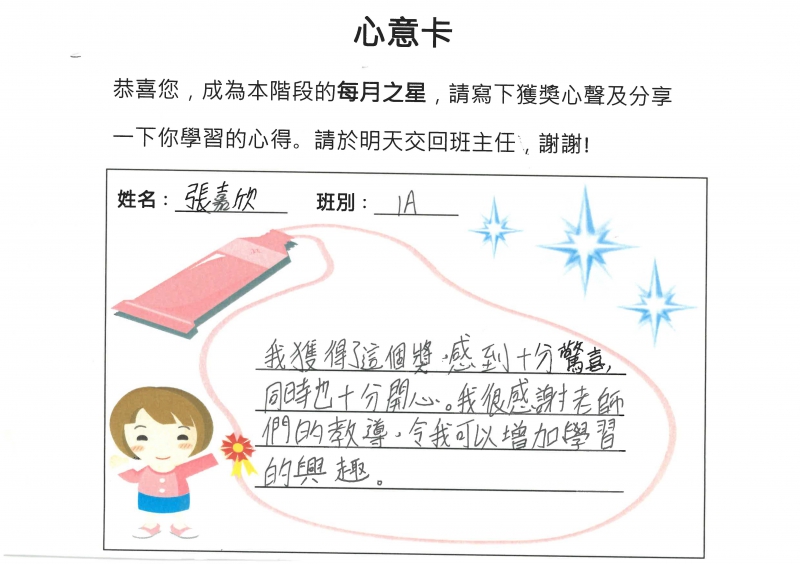 心意卡
恭喜您，成為本階段的每月之星，請寫下獲獎心聲及分享
一下你學習的心得。請於明天交回班主任，謝謝!
姓名：張嘉欣 班別：1A
我獲得了這個獎，感到十分驚喜，
同時也十分開心。我很感謝老師
們的教導，令我可以增加學習
的興趣。